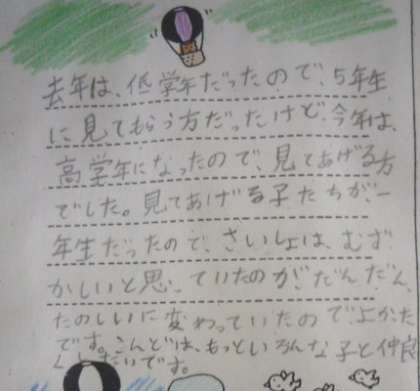 去年は、低学年だったので、5年生
に見てもらう方だったけど、今年は、
高学年になったので、見てあげる方
でした。見てあげる子たちが、一
年生だったので、さいしょは、むず
かしいと思っていたのが、だんだん、
たのしいに変わっていたのでよかった
です。こんどは、もっといろんな子と仲良
くしたいです。